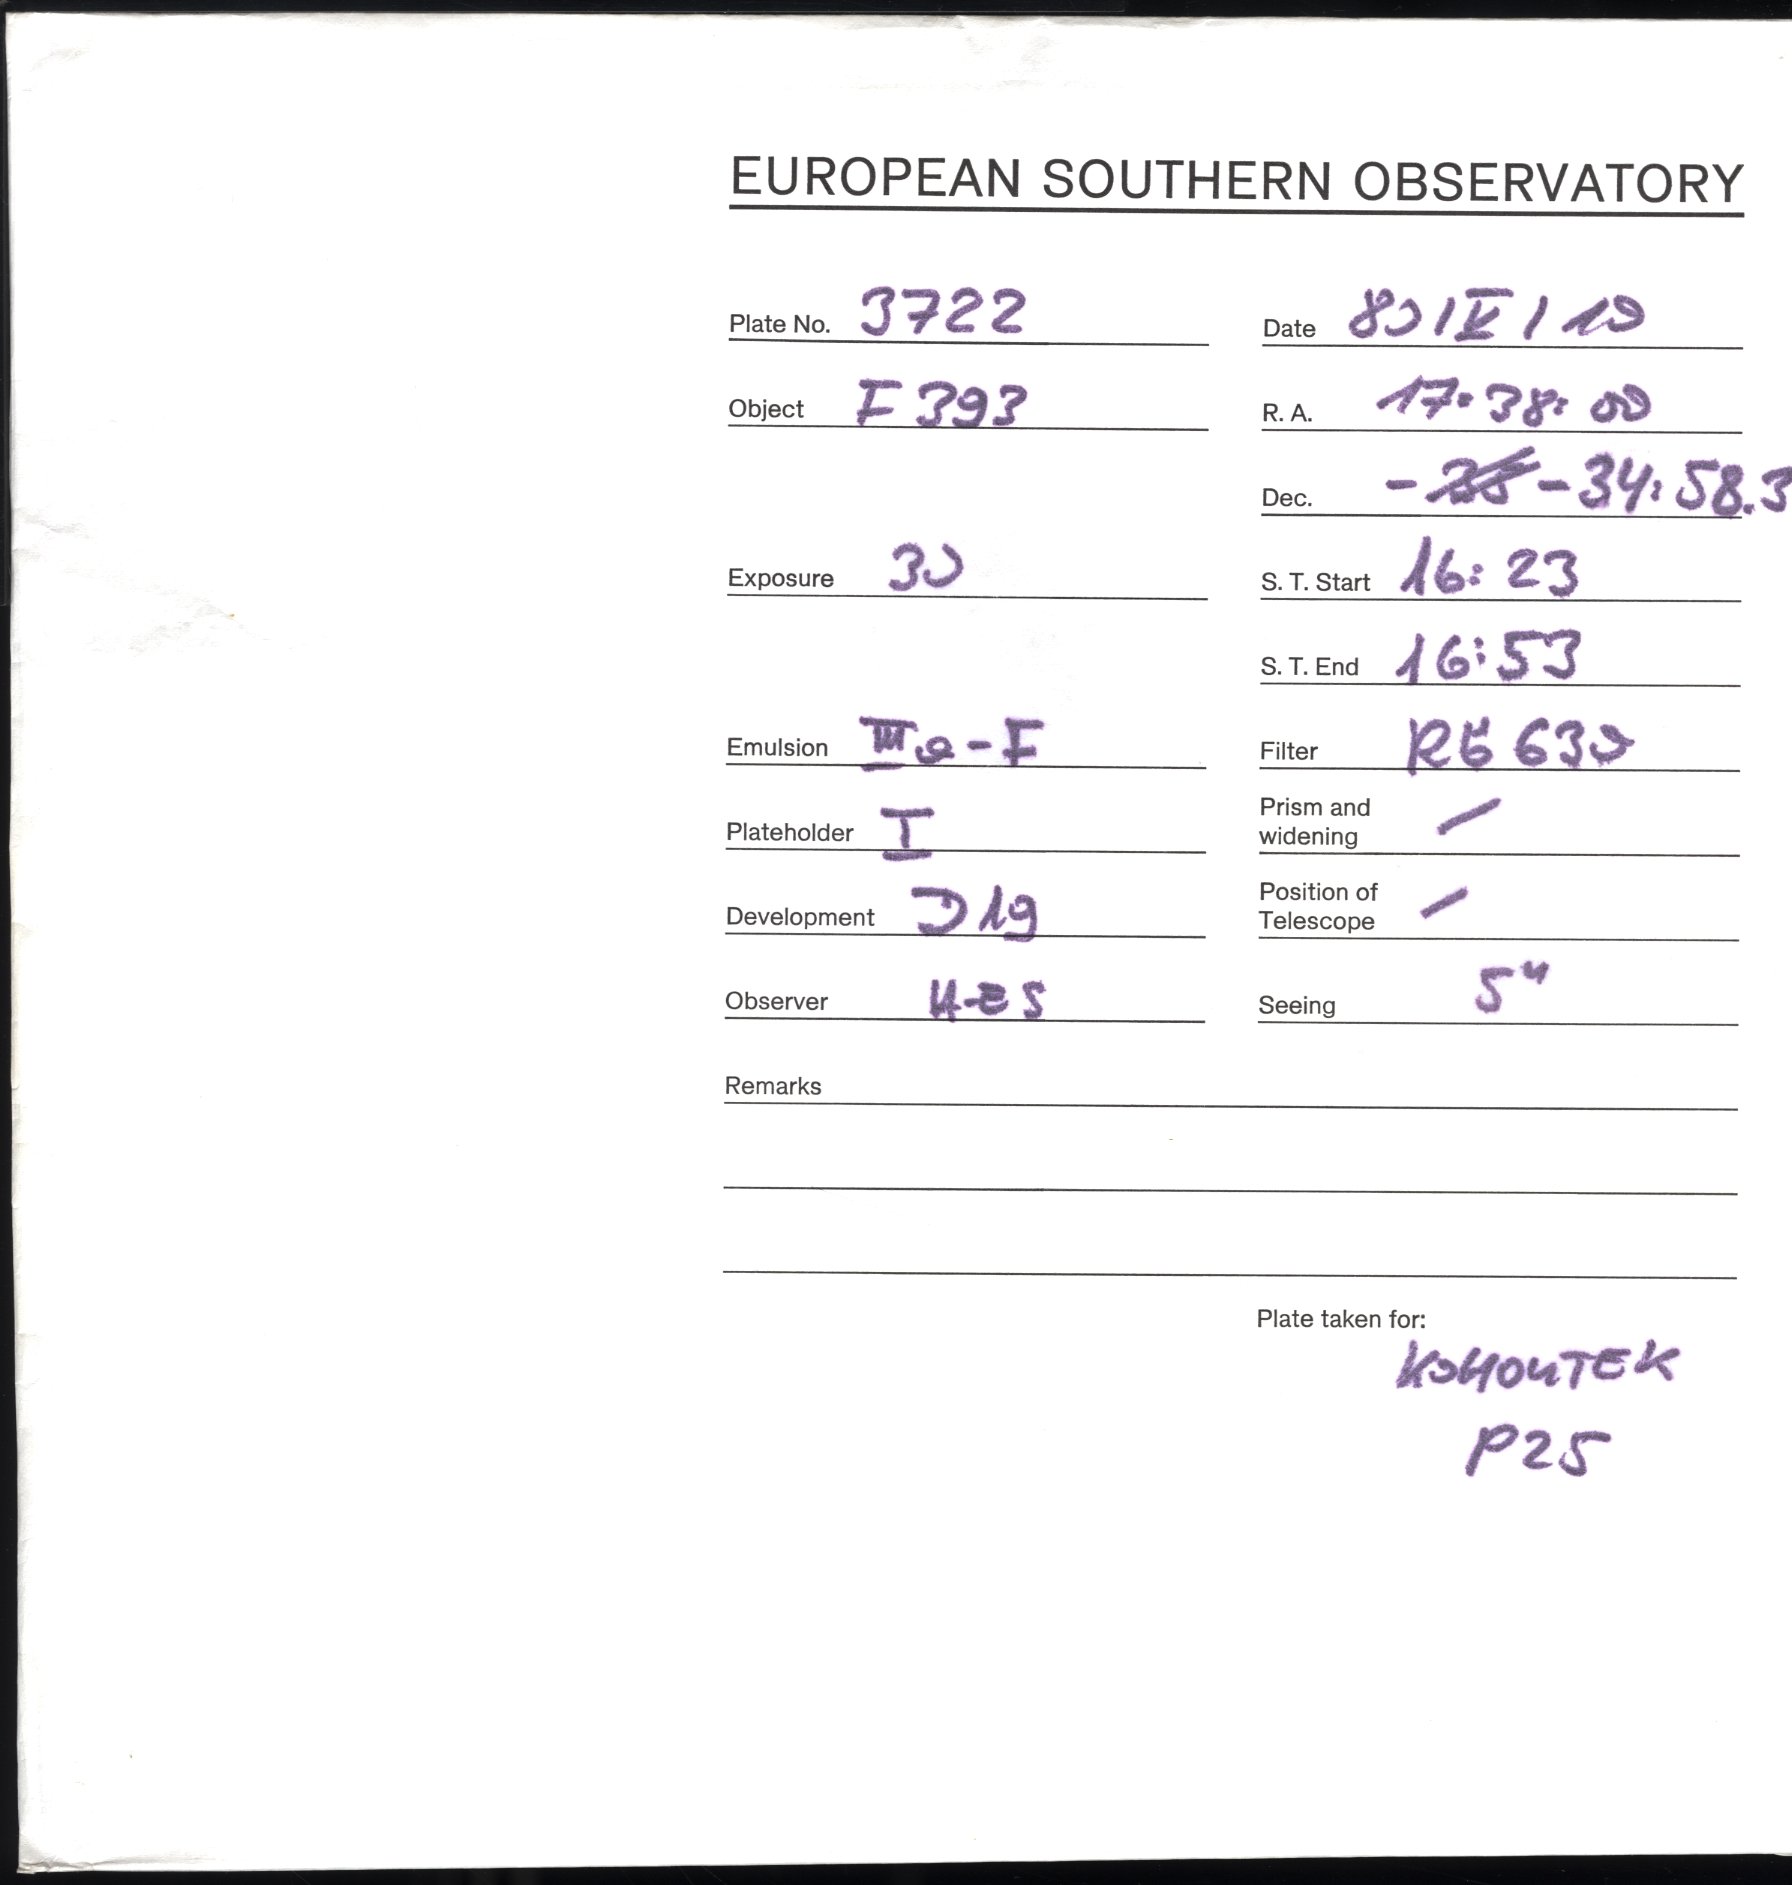 EUROPEAN SOUTHERN OBSERVATORY
Plate No. 3722
Date 80/V/19
Object F393
R. A. 17:38:00
Dec. - -34:58.3
Exposure 30
S. T. Start 16:23
S. T. End 16:53
Emulsion IIIa-F
Filter RG 630
Plateholder I
Prism and
widening /
Development D19
Position of
Telescope /
Observer H-ES
Seeing 5"
Remarks
Plate taken for:
KOHOUTEK
P25